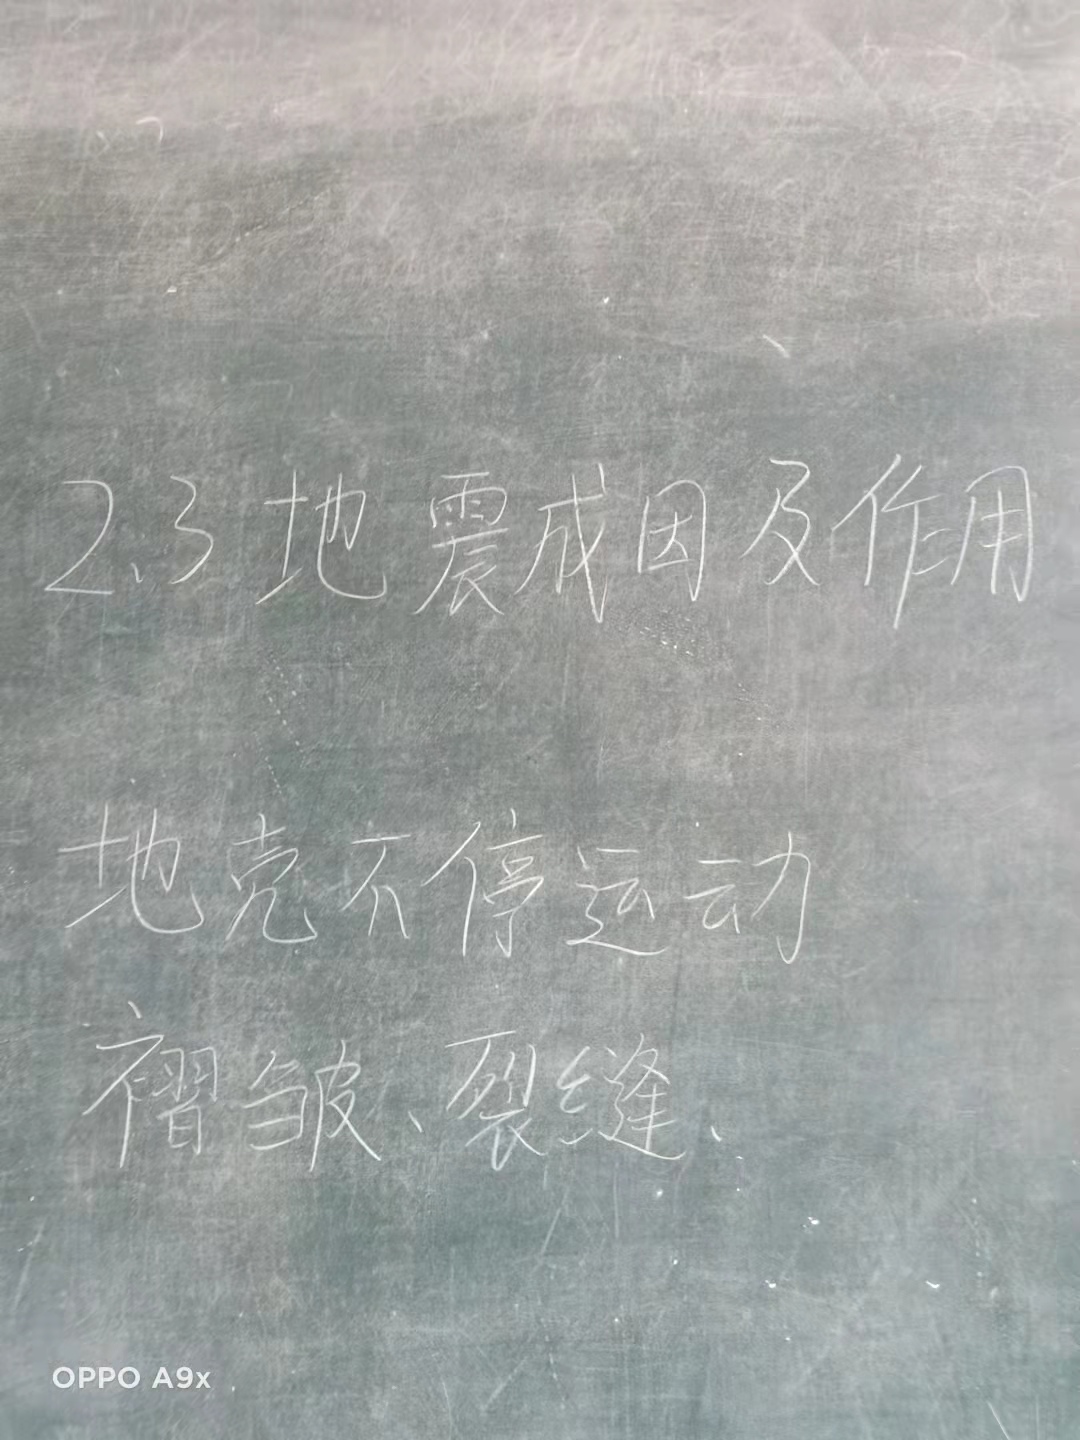 2.3 地震成因及作用
地壳不停运动
褶皱、裂缝、
OPPO A9x